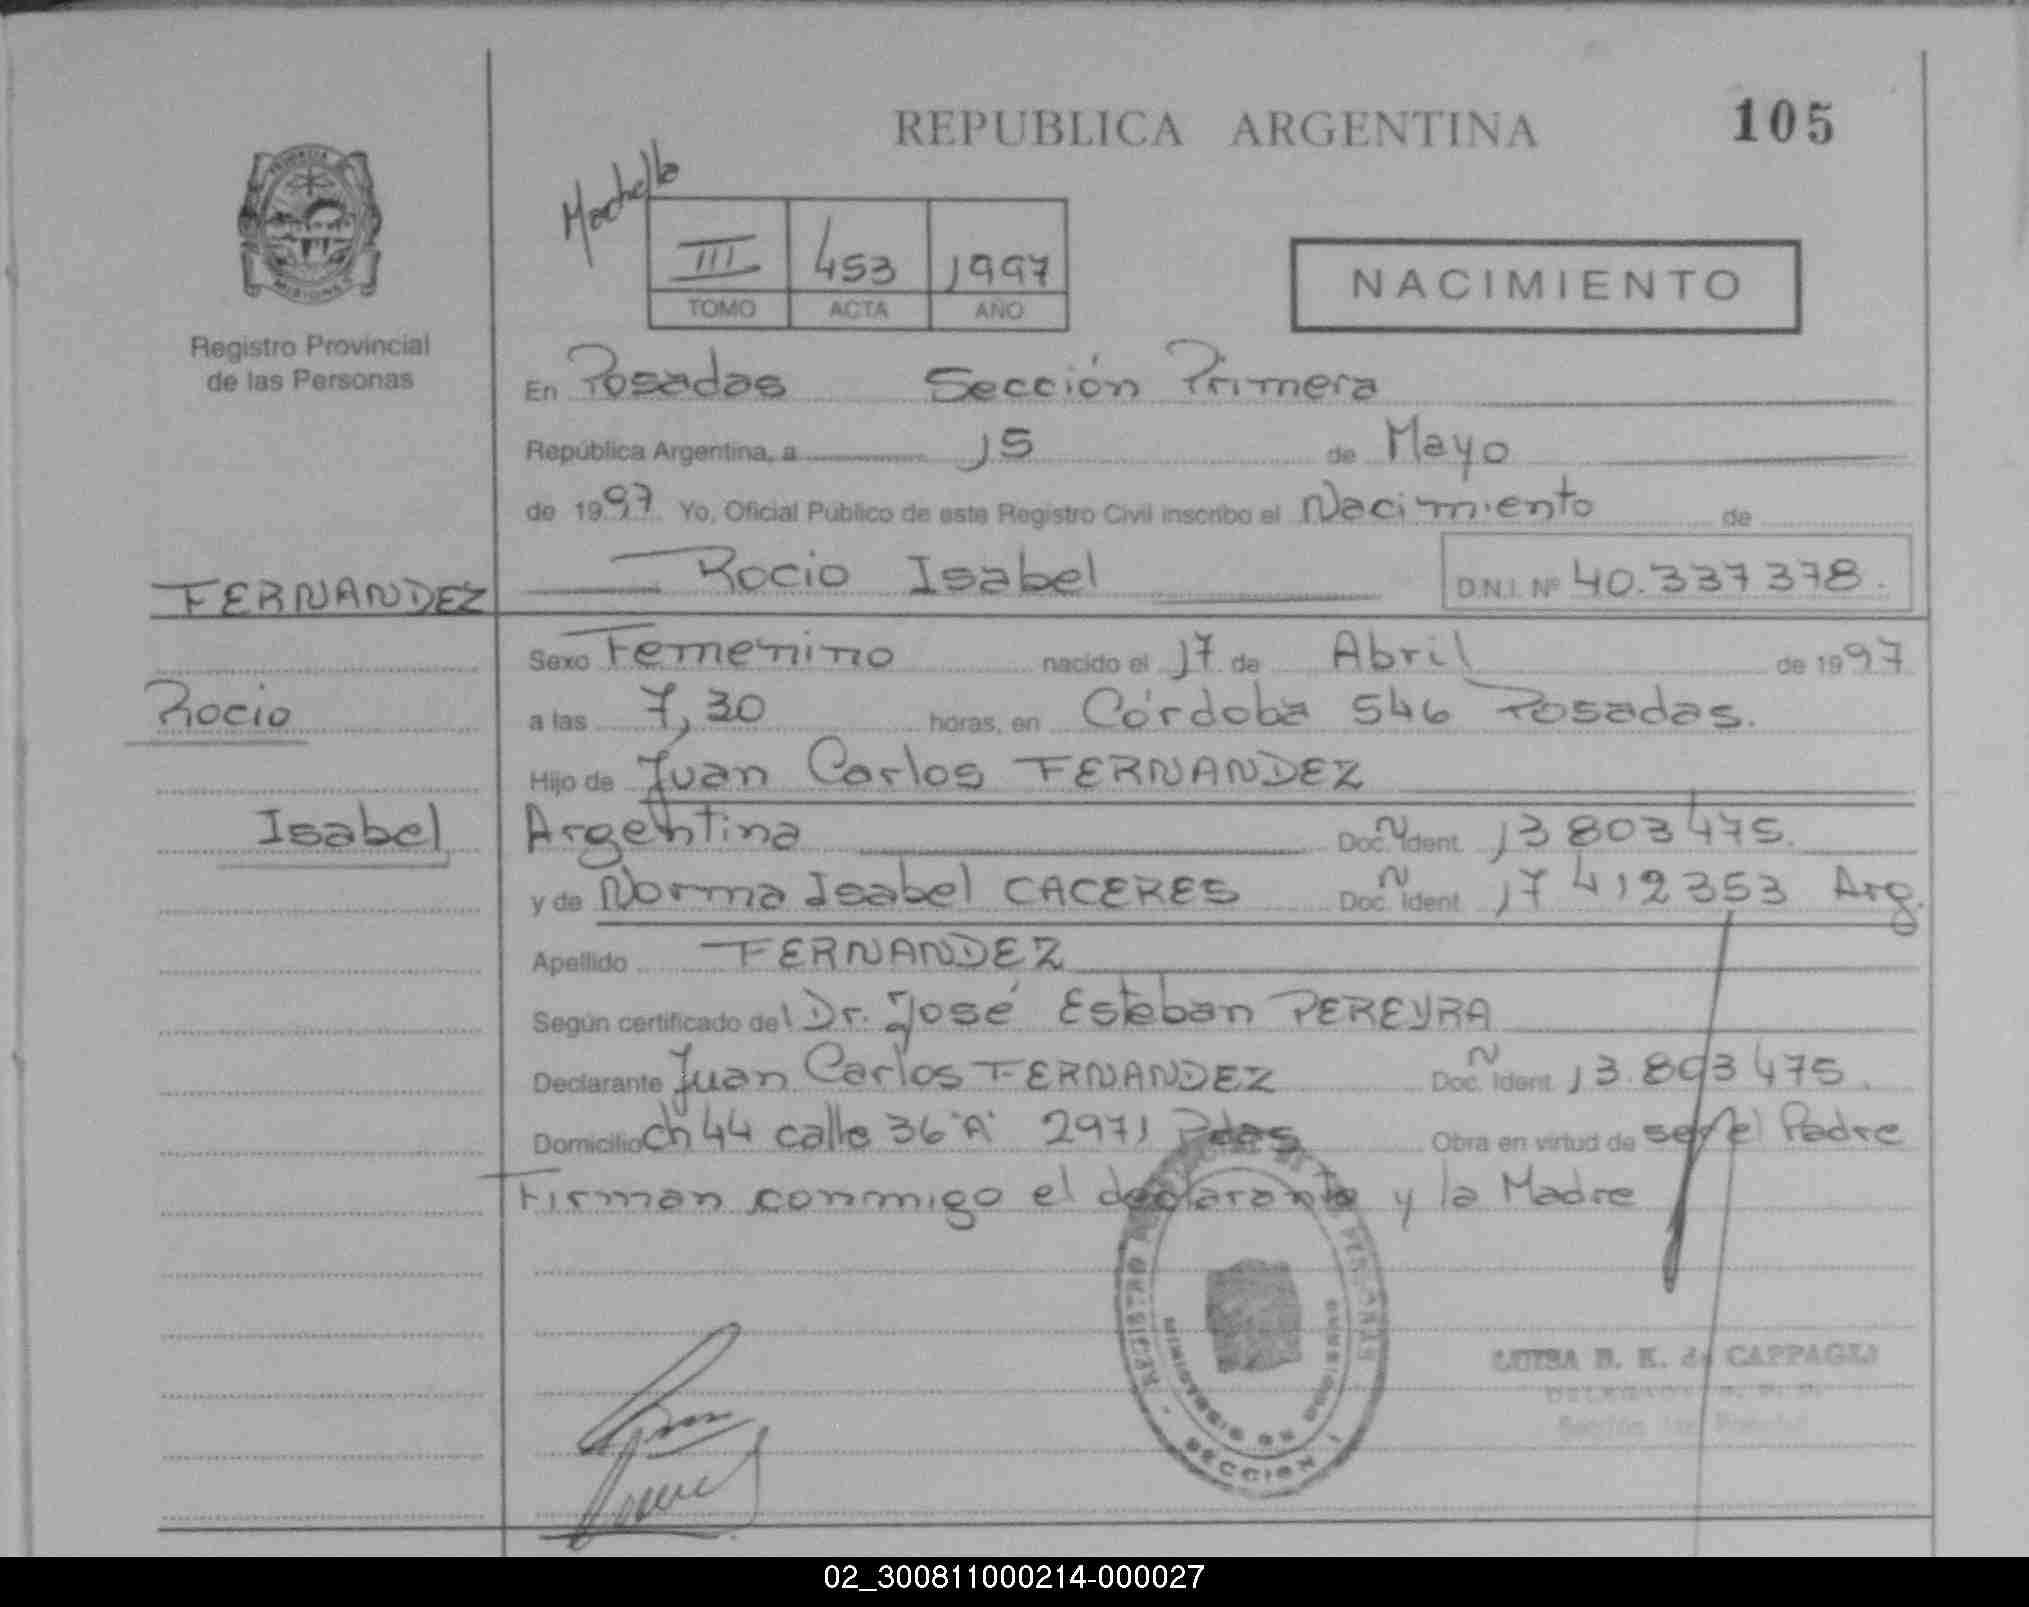 REPUBLICA ARGENTINA 105
III 453 1997
TOMO ACTA AÑO
NACIMIENTO
MISIONES
Registro Provincial
de las Personas
En Posadas Sección Primera
República Argentina, a 15 de Mayo
de 1997 Yo, Oficial Público de este Registro Civil inscribo el Nacimiento de
FERNANDEZ Rocio Isabel D.N.I. Nº 40.337378.
Sexo Femenino nacido el 17 de Abril de 1997
Rocio a las 7,30 horas, en Córdoba 546 Posadas.
Hijo de Juan Carlos FERNANDEZ
Isabel Argentina Doc. Ident. N 13 803 475.
y de Norma Isabel CACERES Doc. Ident. N 17 412353 Arg.
Apellido FERNANDEZ
Según certificado del Dr. José Esteban PEREYRA
Declarante Juan Carlos FERNANDEZ Doc. Ident. Ñ 13.803 475.
Domicilio ch 44 calle 36 "A" 2971 Pdas Obra en virtud de ser el Padre
Firman conmigo el declarante y la Madre
LUISA B. K. de
MINISTERIO DE GOBIERNO
SECCION 1
02_300811000214-000027